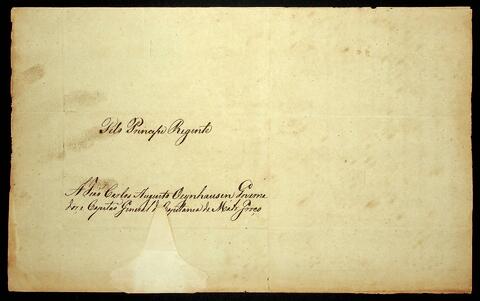 Pelo Principe Regente
A João Carlos Augusto Oeynhausen Governa
dor, e Capitão General da Capitania de Mato Grosso